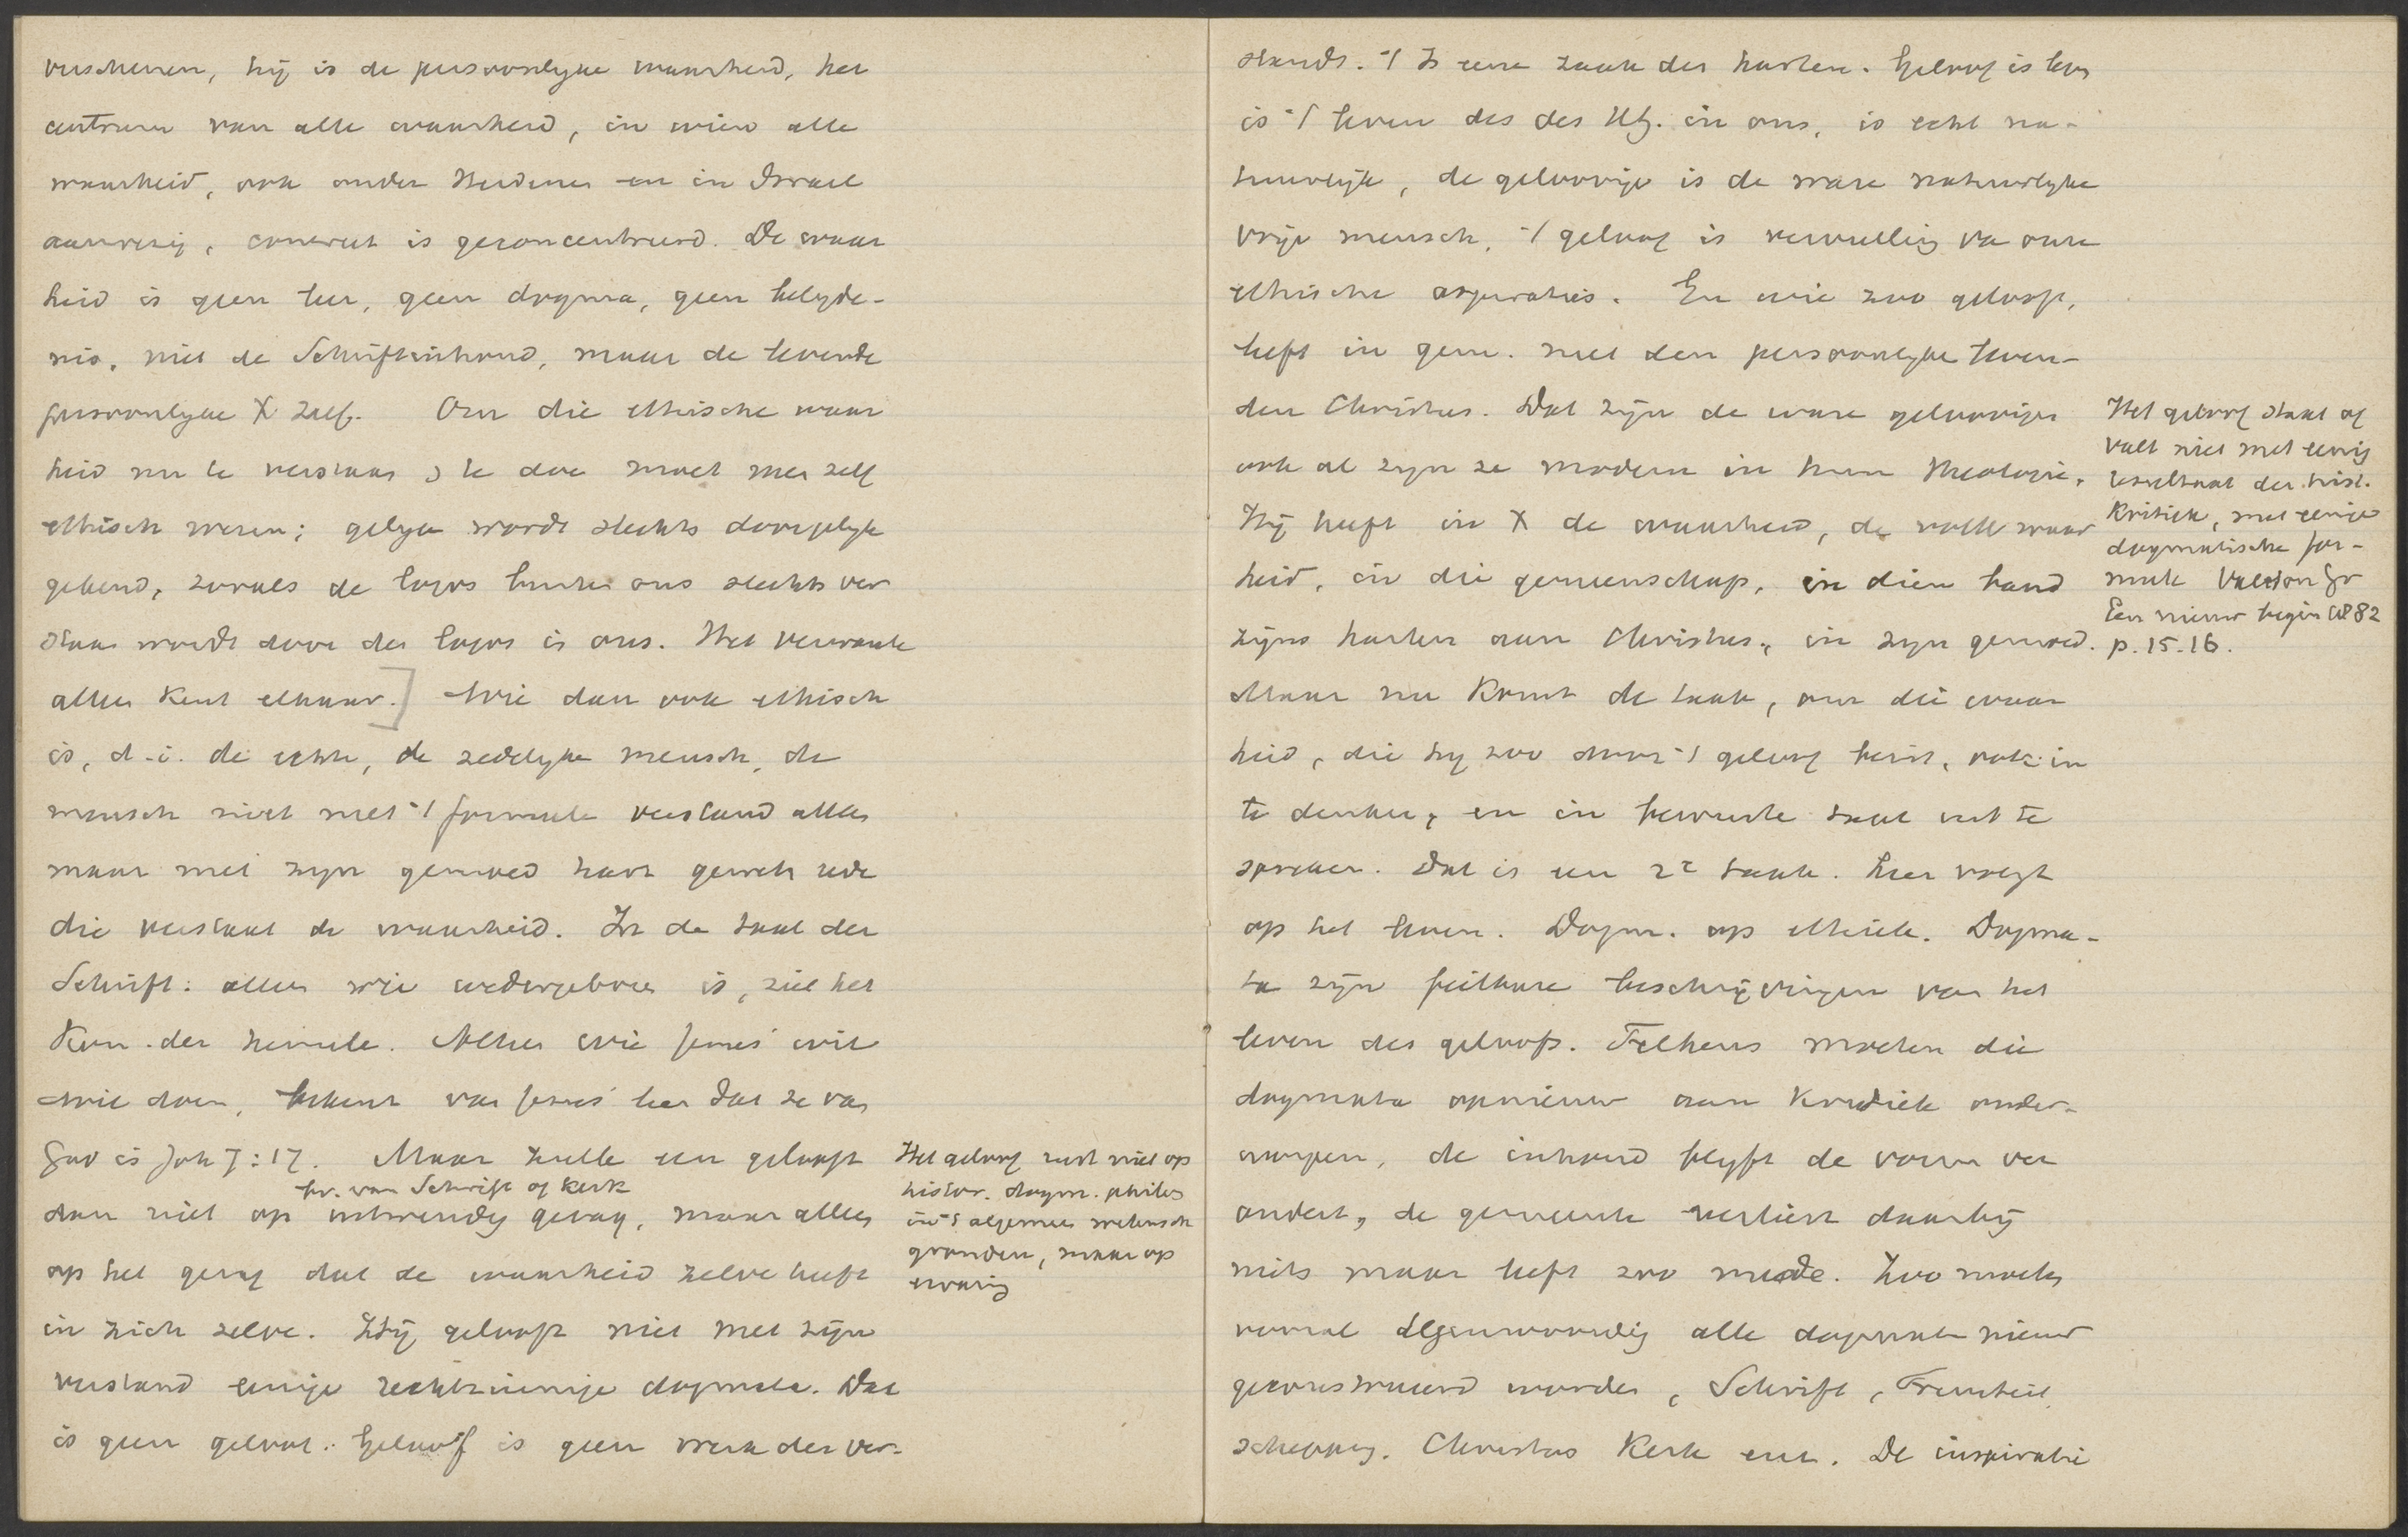 verschenen, hij is de persoonlyke waarheid, het
centrum van alle waarheid, in wien alle
waarheid, ook onder Heidenen en in Israel
aanwezig, concreet is geconcentreerd. De waar
heid is geen leer, geen dogma, geen belyde-
nis, niet de Schriftinhoud, maar de levende
persoonlyke X zelf. Om die ethische waar
heid nu te verstaan te doen moet men zelf
ethisch wezen; gelyk wordt slechts door gelyk
gekend, zooals de logos buiten ons slechts ver
staan wordt door den logos in ons. Het verwante
alleen kent elkaar.] Wie dan ook ethisch
is, d.i. de echte, de zedelyke mensch, de
mensch niet met 't formeele verstand alleen
maar met zyn gemoed hart gewete rede
die verstaat de waarheid. In de taal der
Schrift: alleen wie wedergeboren is, ziet het
Kon. der hemele. Alleen wie Jezus' wil
wil doen, bekent van Jezus' leer dat ze van
God is Joh 7:17. Maar zulk een gelooft
hv. van Schrift of Kerk
dan niet op uitwendig gezag, maar alleen
op het gezag dat de waarheid zelve heeft
in zich zelve. Hij gelooft niet met zijn
verstand eenige rechtzinnige dogmata. Dat
is geen geloof. Geloof is geen werk des ver-
Het geloof rust niet op
histor. dogm. philos
in 't algemeen wetensch
gronden, maar op
ervaring
stands. 't Is eene zaak des harten. Geloof is leven
is 't leven des des HG. in ons, is echt na-
tuurlijk, de geloovige is de ware natuurlyke
vrije mensch, 't geloof is vervulling van onze
ethische aspiraties. En wie zoo gelooft,
leeft in gem. met den persoonlyke leven-
den Christus. Dat zijn de ware geloovigen
ook al zyn ze modern in hun theologie.
Hij heeft in X de waarheid, de volle waar
heid, in die gemeenschap, in dien band
zijns harten aan Christus, in zyn gemoed.
Maar nu komt de taak, om die waar
heid, die hy zoo door 't geloof bezit, ook in
te denken, en in bewuste taal uit te
spreken. Dat is een 2e taak. Leer volgt
op het leven. Dogm. op ethiek. Dogma-
ta zijn feilbare beschrijvingen van het
leven des geloofs. Telkens moeten die
dogmata opnieuw aan Kritiek onder-
worpen, de inhoud blyft de vorm ver
andert, de gemeente verliest daarbij
niets maar leeft zoo mede. Zoo moeten
vooral tegenwoordig alle dogmata nieuw
geconstrueerd worden, Schrift, Triniteit,
schepping. Christus Kerk enz. De inspiratie
Het geloof staat of
valt niet met eenig
resultaat der hist.
Kritiek, met eenige
dogmatische for-
mule Valeton Gr
Een nieuw begin 1882
p. 15.16.